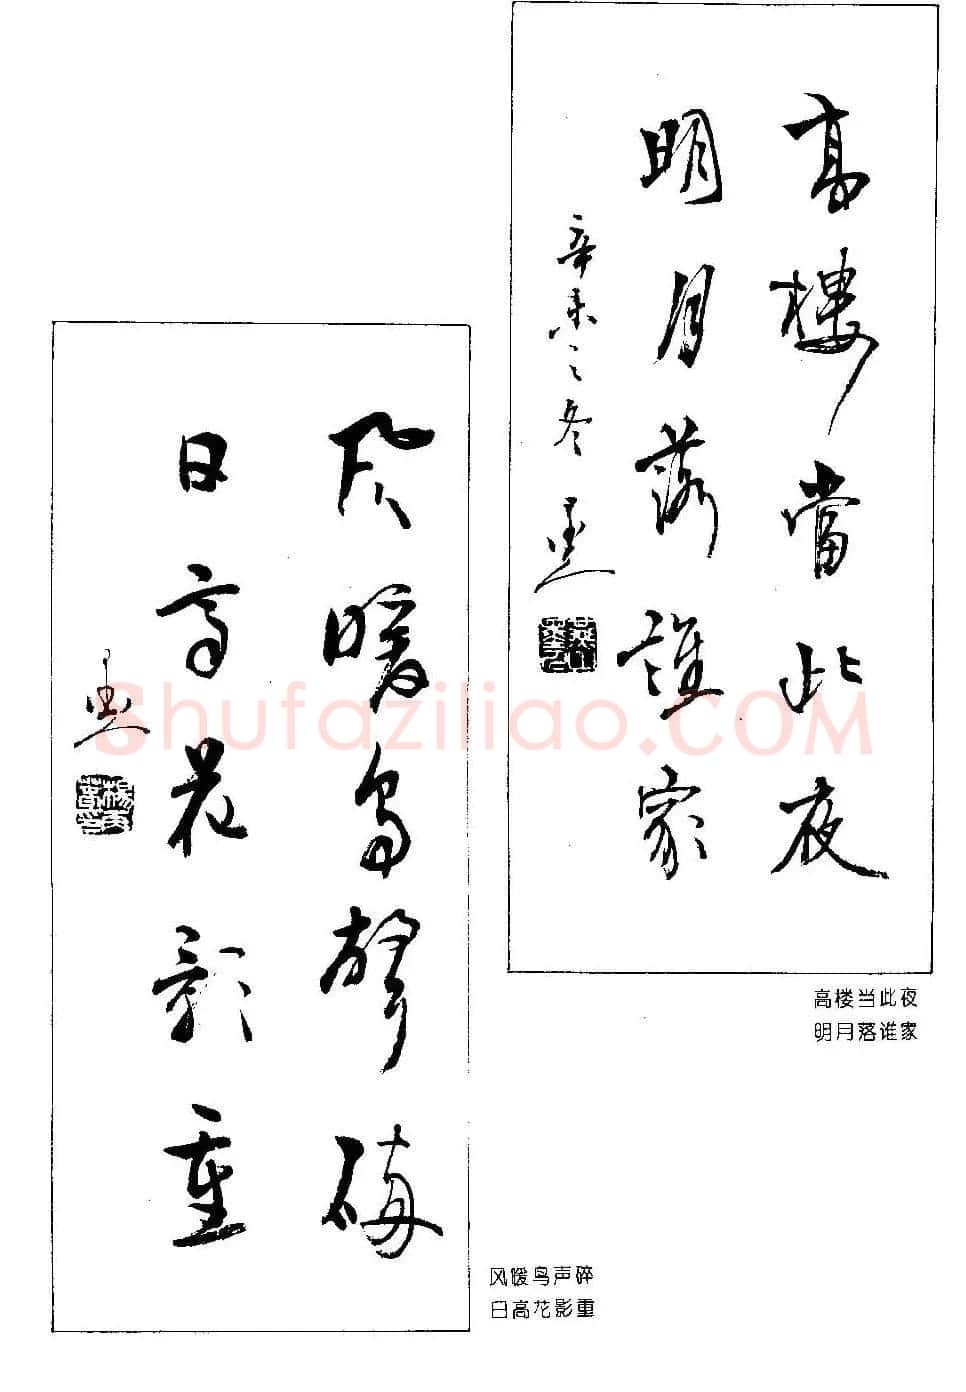 高樓當此夜
明月落誰家
辛未之冬
高楼当此夜
明月落谁家
风暖鸟聲碎
日高花影重
风暖鸟声碎
日高花影重
Shufaziliao.COM